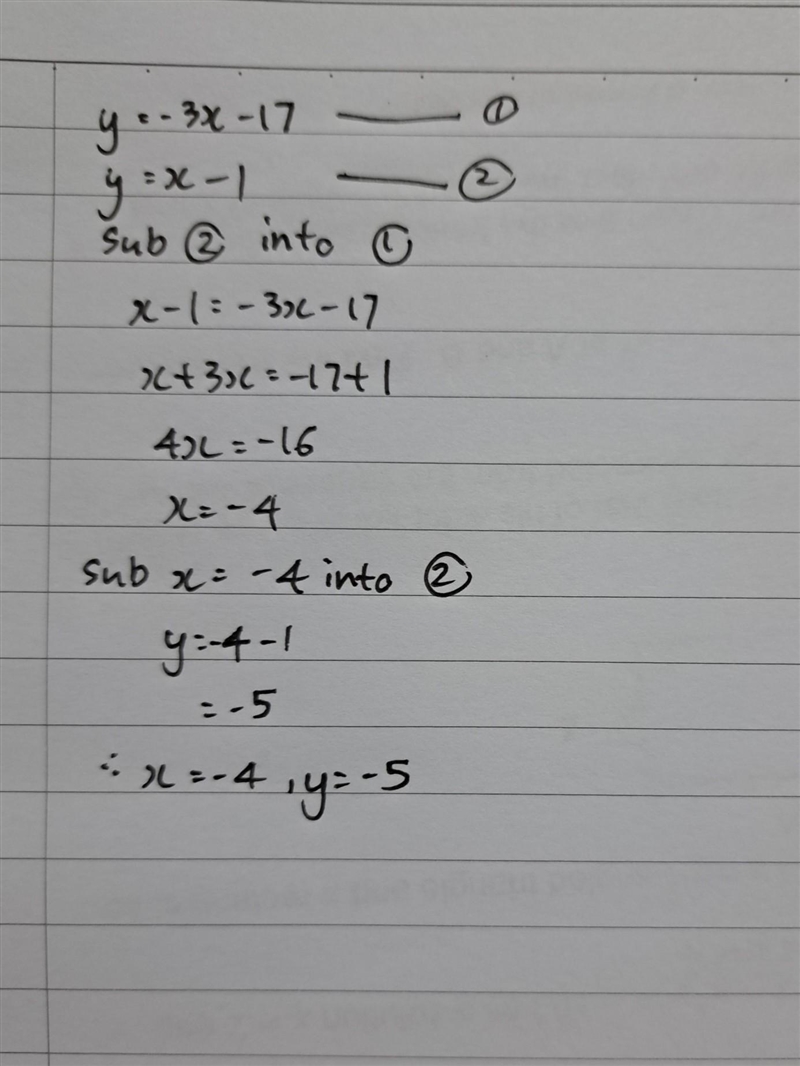 y = -3x - 17 —— ①
y = x - 1 —— ②
sub ② into ①
x - 1 = -3x - 17
x + 3x = -17 + 1
4x = -16
x = -4
sub x = -4 into ②
y = -4 - 1
= -5
∴ x = -4 , y = -5